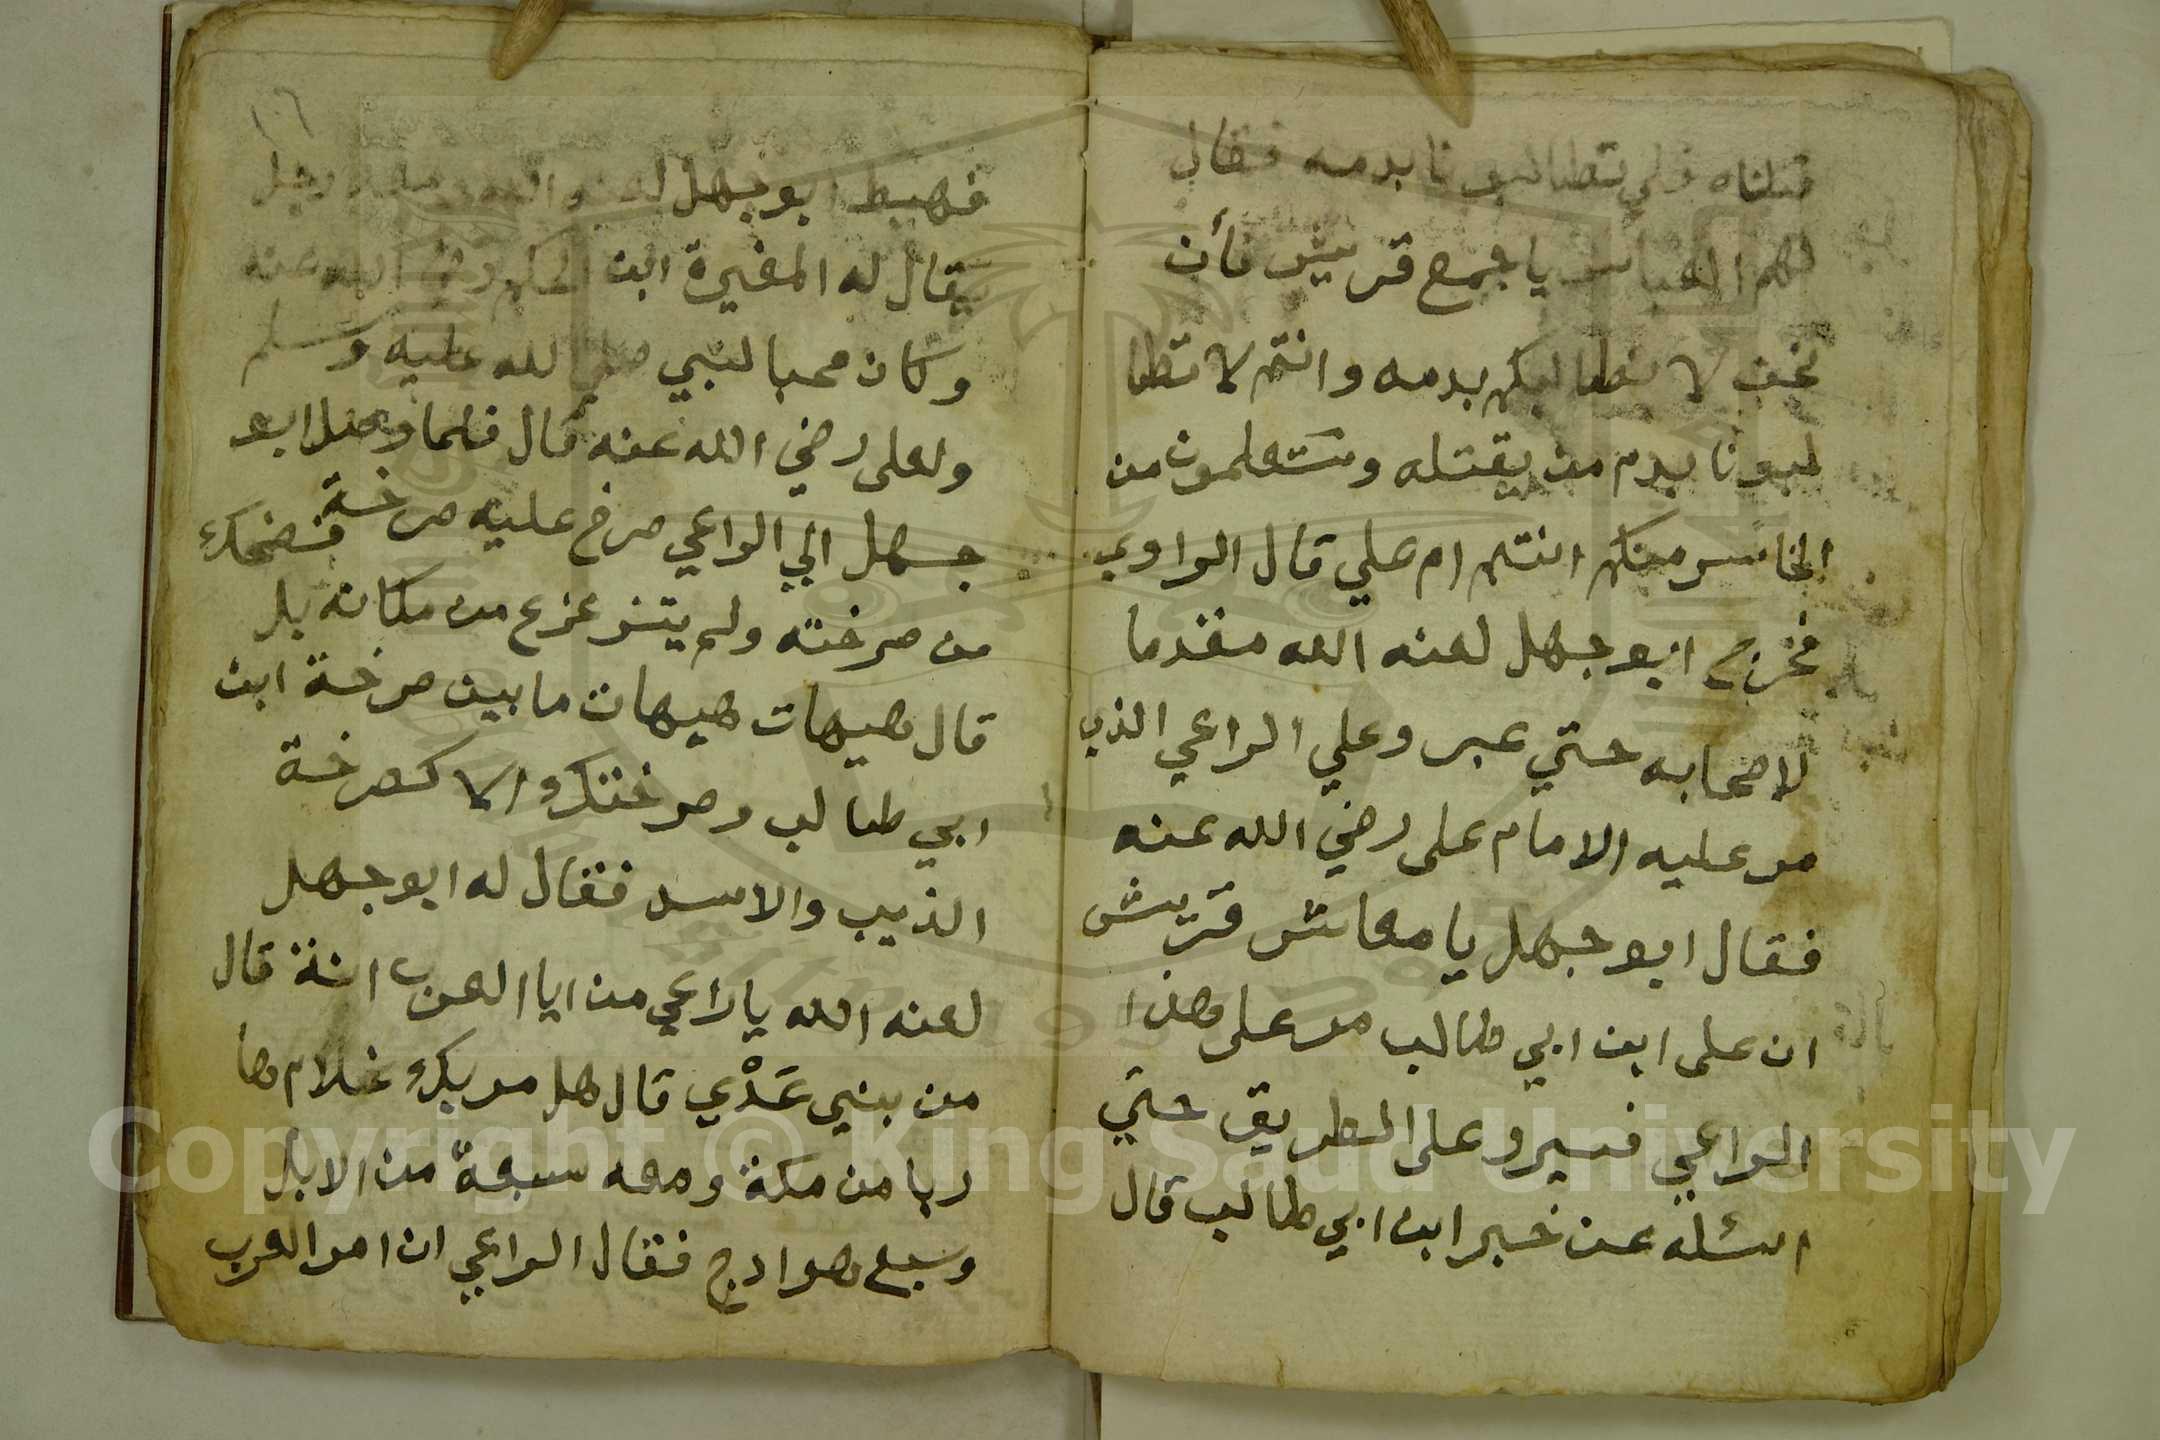 قتلناه فلي تطالبونا بدمه فقال
لهم العباس يا جمع قريش فأن
نحن لا نطالبكم بدمه وانتم لا تطا
لبونا بدم من يقتله وستعلمون من
الخاسر منكم انتم ام علي قال الراوي
فخرج ابو جهل لعنه الله مقدما
لاصحابه حتي عبر وعلي الراعي الذي
مر عليه الامام على رضي الله عنه
فقال ابو جهل يا معاشر قريش
ان على ابن ابي طالب مر على هذا
الراعي فسيرو على الطريق حتي
اسئله عن خبر ابن ابي طالب قال
١٠٦
فهبط ابو جهل لعنه الله رجل
يقال له المغيرة ابن الحكم رضي الله عنه
وكان محبا للنبي صلي الله عليه وسلم
ولعلى رضي الله عنه قال فلما وصل ابو
جهل الي الراعي صرخ عليه صرخة فضحك
من صرخته ولم يتزعزع من مكانه بل
قال هيهات هيهات ما بين صرخة ابن
ابي طالب وصرختك الا كصرخة
الذيب والاسد فقال له ابو جهل
لعنه الله يا راعي من ايا العرب انة قال
من بني عَدْي قال هل مر بك غلام ها
ربا من مكة ومعه سبعة من الابل
وسبع هوادج فقال الراعي ان امر العرب
Copyright © King Saud University